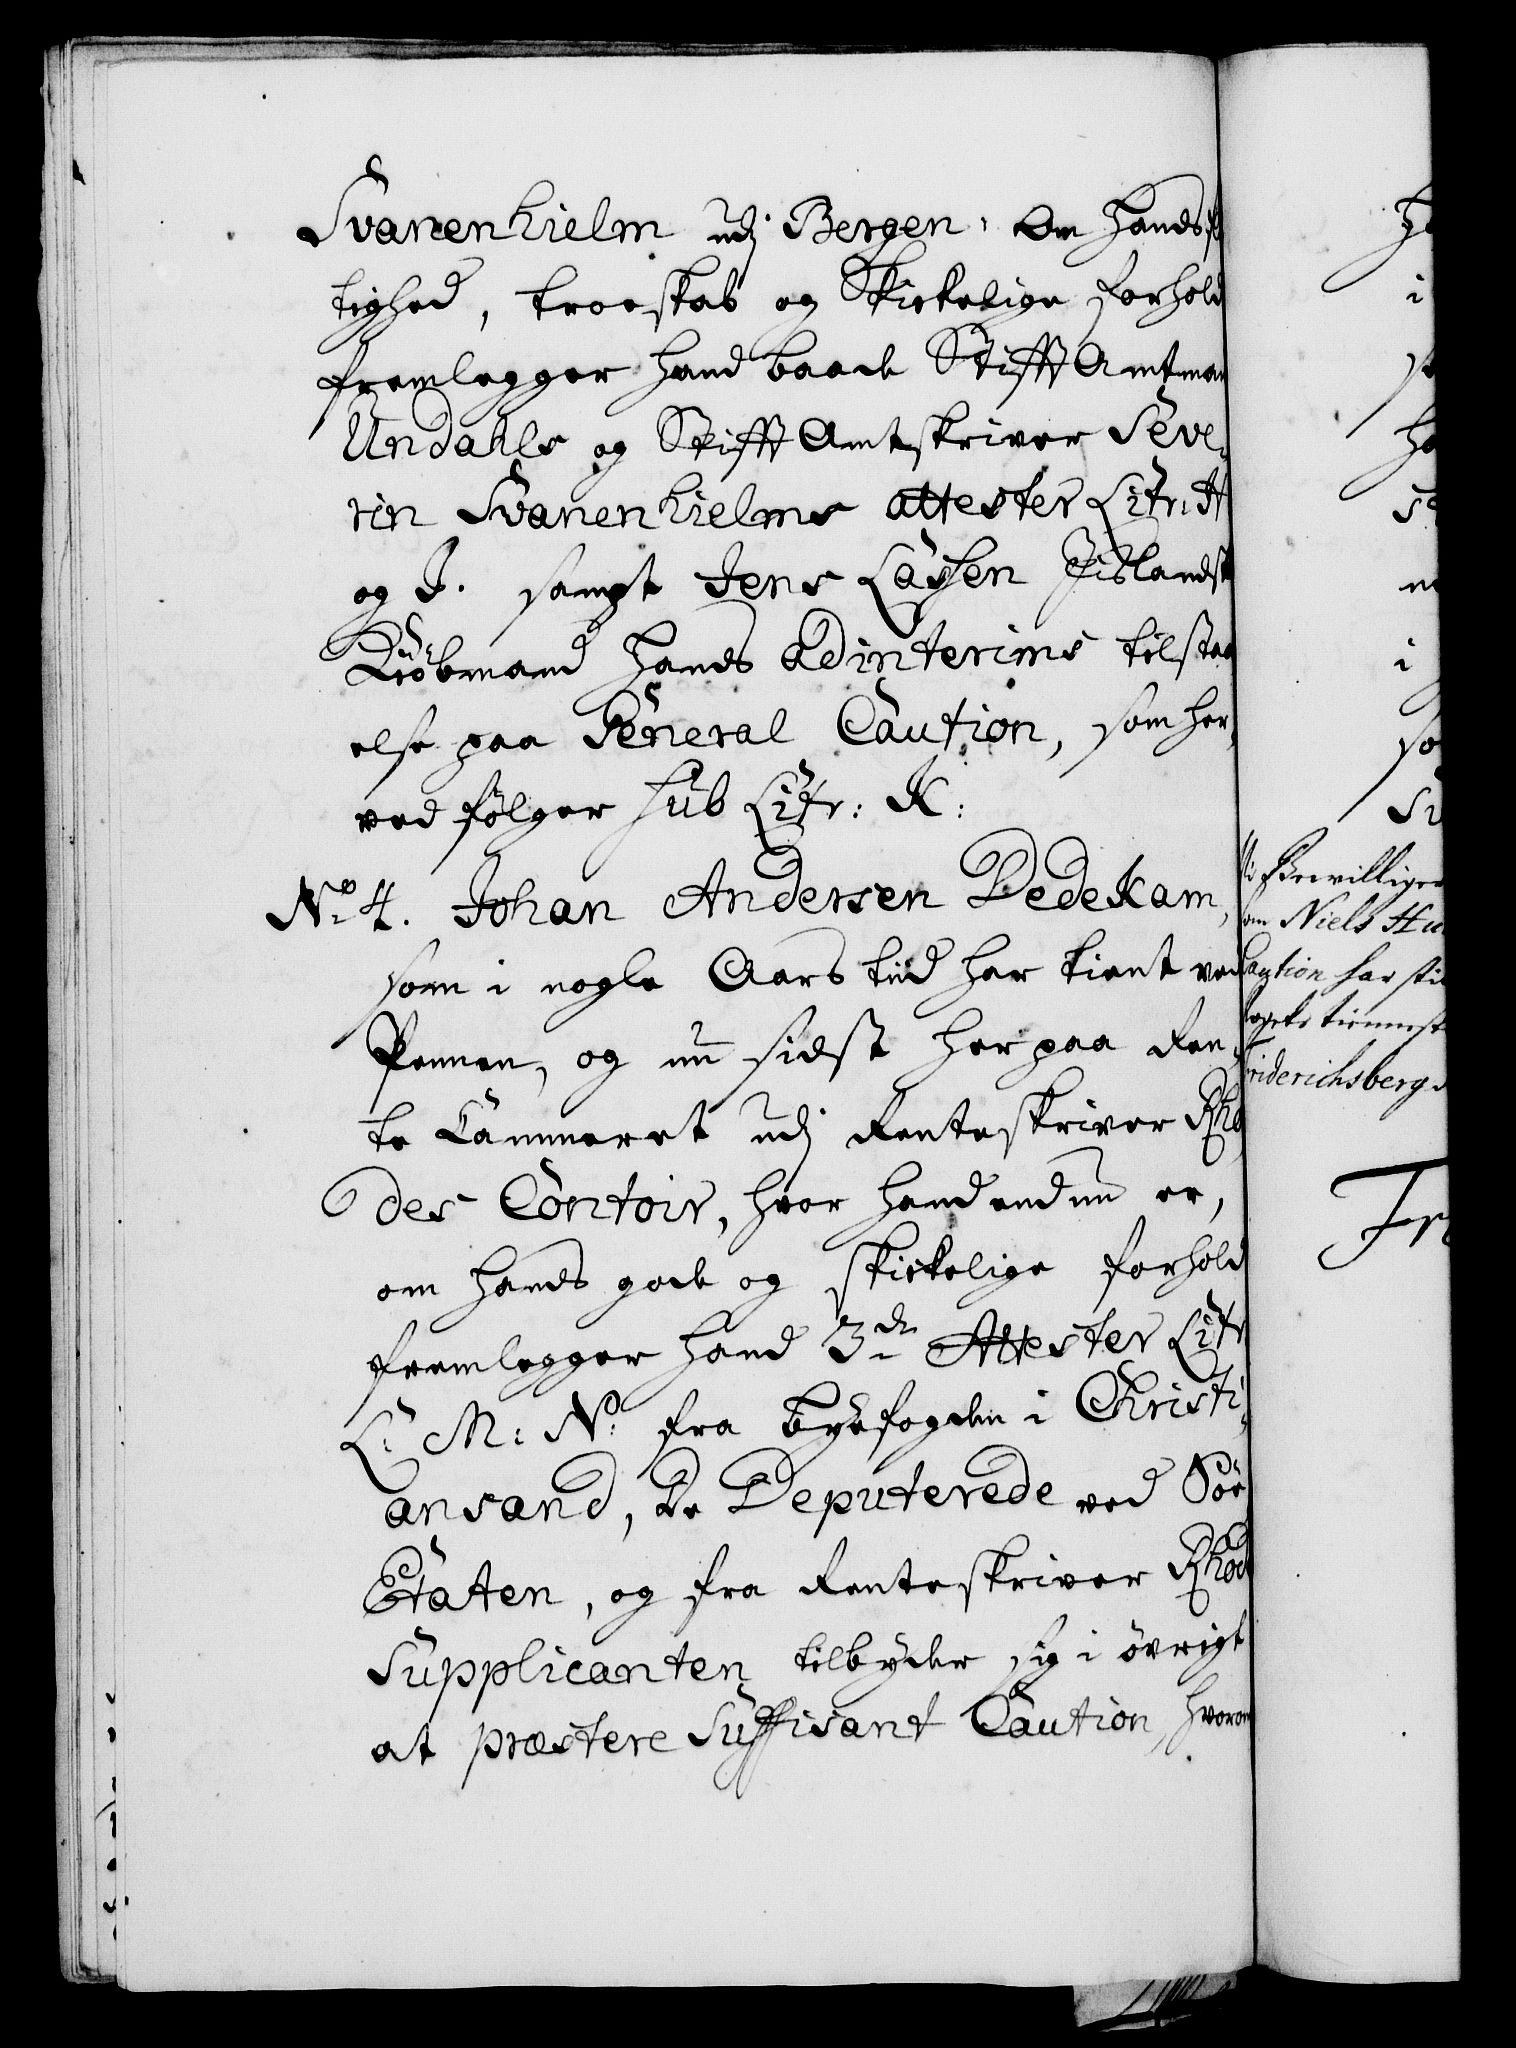 Svanenhielm udj Bergen: Om hands
tighed, troeskab og Skickelige forhold
fremlegger hand baade StifftAmtman
Undahls og StifftAmtskriver Seve-
rin Svanenhielms attester Litr: H
og I. sampt Jens Lassen Iislandsk
Kiöbmand hands adinterims tilstaa
else paa General Caution, som her,
ved følger sub Litr: K:
No 4. Johan Andersen Dedekam,
som i nogle Aars tiid har tient ved
Pennen, og nu sidst her paa Ren-
te Cammeret udj Renteskriver Rho
des Contoir, hvor hand endnu er,
om hands gode og skickelige forhold
fremlegger hand 3de Attester Litr
L: M: N: fra byefogden i Christi-
ansand, De Deputerede ved Söe
Etaten, og fra Renteskriver Rhode
Supplicanten tilbyder sig i øvrigt
at præstere suffisant Caution, hvorom
Vi Bevilliger
som Niels
Caution har
riderichsberg